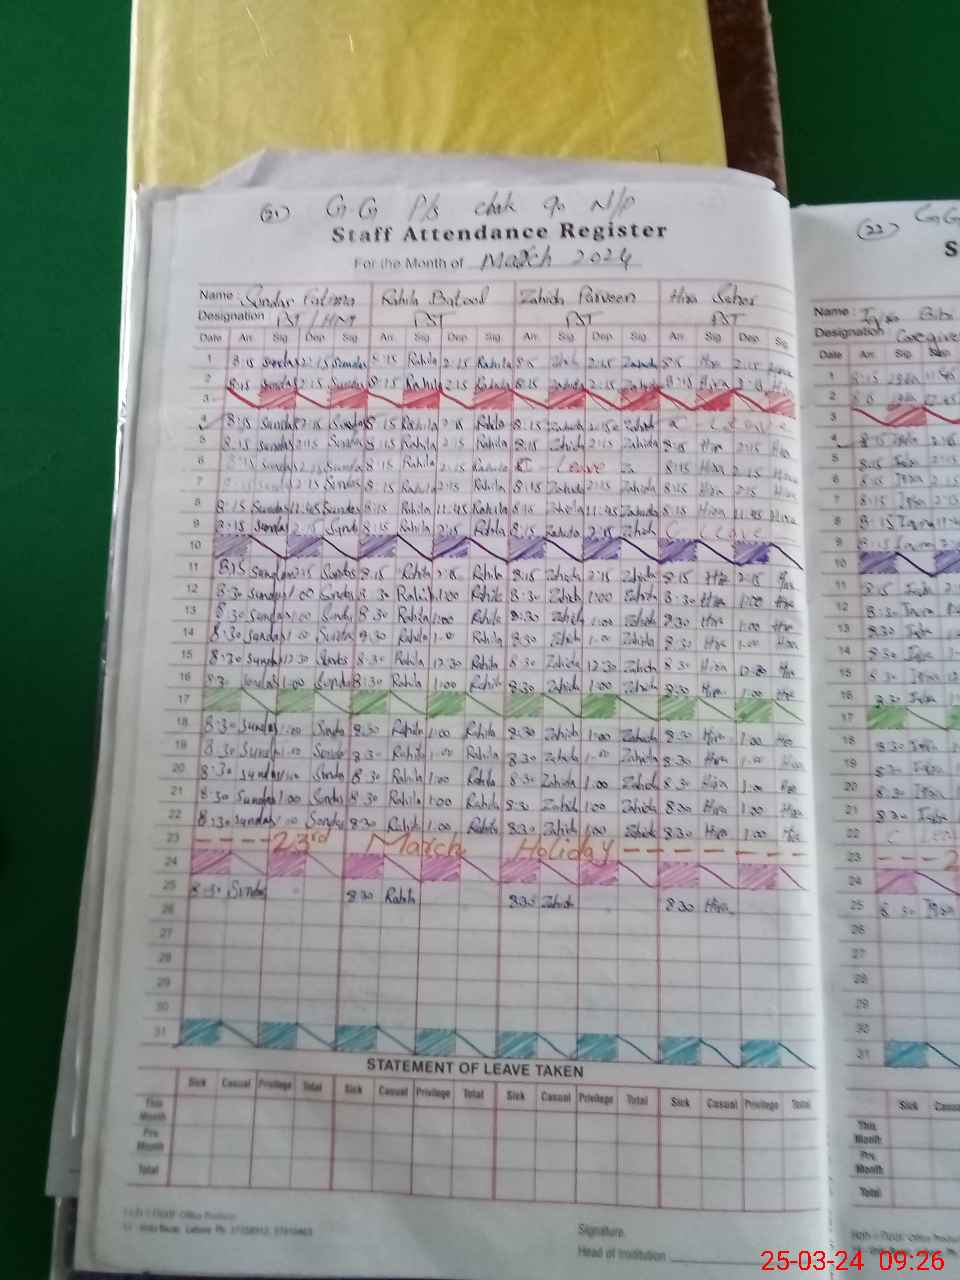 (21) G.G P/s chak 90 N/P
Staff Attendance Register
For the Month of March 2024
Name : Sundas Fatima Rahila Batool Zahida Parveen Hira Sehar
Designation PST / HM PST PST PST
Date Arr. Sig. Dep. Sig. Arr. Sig. Dep Sig. Arr. Sig. Dep. Sig. Arr. Sig. Dep. Sig.
1 8:15 Sundas 2:15 Sundas 8:15 Rahila 2:15 Rahila 8:15 Zahida 2:15 Zahida 8:15 Hira 2:15 Hira
2 8:15 Sundas 2:15 Sundas 8:15 Rahila 2:15 Rahila 8:15 Zahida 2:15 Zahida 8:15 Hira 2:15 Hira
3
4 8:15 Sundas 2:15 Sundas 8:15 Rahila 2:15 Rahila 8:15 Zahida 2:15 Zahida
5 8:15 Sundas 2:15 Sundas 8:15 Rahila 2:15 Rahila 8:15 Zahida 2:15 Zahida 8:15 Hira 2:15 Hira
6 8:15 Sundas 2:15 Sundas 8:15 Rahila 2:15 Rahila Leave 8:15 Hira 2:15 Hira
7 8:15 Sundas 2:15 Sundas 8:15 Rahila 2:15 Rahila 8:15 Zahida 2:15 Zahida 8:15 Hira 2:15 Hira
8 8:15 Sundas 11:45 Sundas 8:15 Rahila 11:45 Rahila 8:15 Zahida 11:45 Zahida 8:15 Hira 11:45 Hira
9 8:15 Sundas 2:15 Sundas 8:15 Rahila 2:15 Rahila 8:15 Zahida 2:15 Zahida C Leave
10
11 8:15 Sundas 2:15 Sundas 8:15 Rahila 2:15 Rahila 8:15 Zahida 2:15 Zahida 8:15 Hira 2:15 Hira
12 8:30 Sundas 1:00 Sundas 8:30 Rahila 1:00 Rahila 8:30 Zahida 1:00 Zahida 8:30 Hira 1:00 Hira
13 8:30 Sundas 1:00 Sundas 8:30 Rahila 1:00 Rahila 8:30 Zahida 1:00 Zahida 8:30 Hira 1:00 Hira
14 8:30 Sundas 1:00 Sundas 8:30 Rahila 1:00 Rahila 8:30 Zahida 1:00 Zahida 8:30 Hira 1:00 Hira
15 8:30 Sundas 12:30 Sundas 8:30 Rahila 12:30 Rahila 8:30 Zahida 12:30 Zahida 8:30 Hira 12:30 Hira
16 8:30 Sundas 1:00 Sundas 8:30 Rahila 1:00 Rahila 8:30 Zahida 1:00 Zahida 8:30 Hira 1:00 Hira
17
18 8:30 Sundas 1:00 Sundas 8:30 Rahila 1:00 Rahila 8:30 Zahida 1:00 Zahida 8:30 Hira 1:00 Hira
19 8:30 Sundas 1:00 Sundas 8:30 Rahila 1:00 Rahila 8:30 Zahida 1:00 Zahida 8:30 Hira 1:00 Hira
20 8:30 Sundas 1:00 Sundas 8:30 Rahila 1:00 Rahila 8:30 Zahida 1:00 Zahida 8:30 Hira 1:00 Hira
21 8:30 Sundas 1:00 Sundas 8:30 Rahila 1:00 Rahila 8:30 Zahida 1:00 Zahida 8:30 Hira 1:00 Hira
22 8:30 Sundas 1:00 Sundas 8:30 Rahila 1:00 Rahila 8:30 Zahida 1:00 Zahida 8:30 Hira 1:00 Hira
23 23rd March Holiday
24
25 8:30 Sundas 8:30 Rahila 8:30 Zahida 8:30 Hira
26
27
28
29
30
31
STATEMENT OF LEAVE TAKEN
Sick Casual Privilege Total Sick Casual Privilege Total Sick Casual Privilege Total Sick Casual Privilege Total
This Month
Pre. Month
Total
Signature.
Head of Institution
(22) GG
S
Name :
Designation Caregiver
Date Arr. Sig. Dep
1 8:15
2
3
4 8:15 2:15
5 8:15
6 8:15
7 8:15
8 8:15
9 8:15
10
11 8:15
12 8:30
13 8:30
14 8:30
15 8:30
16 8:30
17
18 8:30
19 8:30
20 8:30
21 8:30
22 C
23 2
24
25 8:30
26
27
28
29
30
31
Sick
This Month
Pre. Month
Total
25-03-24 09:26